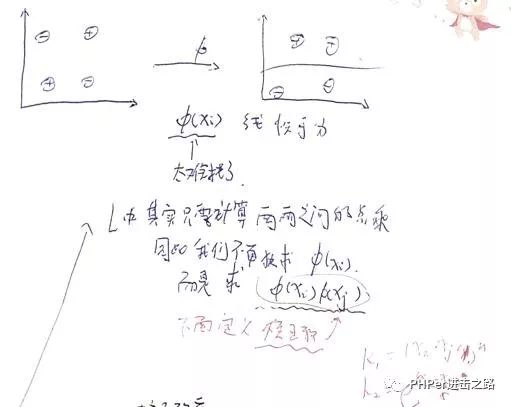 ⊖ ⊕
⊕ ⊖
φ
⊕ ⊖
⊖ ⊖
φ(xi) 线性可分
太难找了
L中其实只需计算两两之间的点乘
因此我们不再找求 φ(xi)
而是求 φ(xi)φ(xj)
下面定义核函数
k₁ =
k₂ =
PHPer进击之路